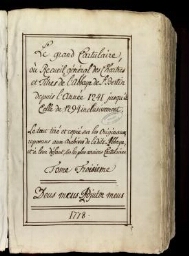 Le grand Cartulaire,
ou Recueil général des Chartres
et titres de l'abbaye de St Bertin
depuis l'Année 1241 jusqu'à
Celle de 1294 inclusivement.
Le tout tiré et copié sur les Originaux
reposans aux Archives de ladite Abbaye,
et à leur défaut, sur les plus anciens Cartulaires
Tome Troisieme
Deus meus Adjutor meus
1778